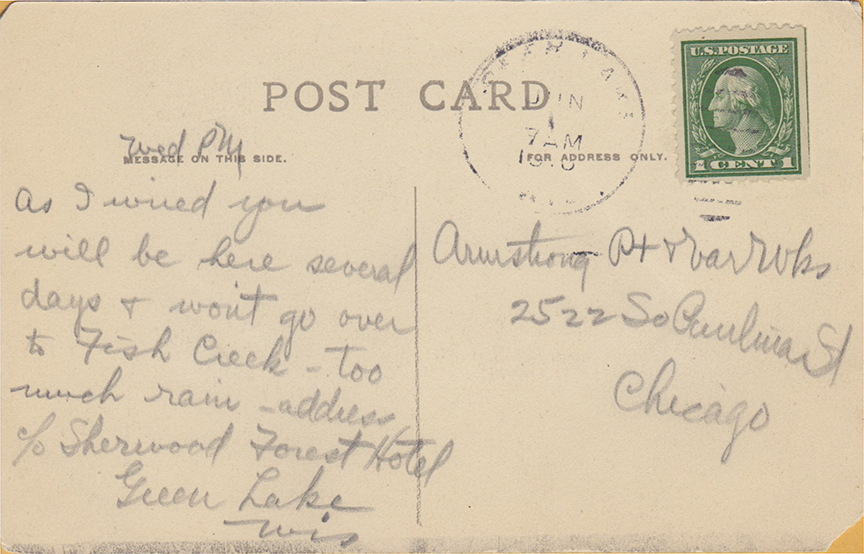 U.S. POSTAGE
1 CENT 1
POST CARD
JUN
7 AM
Wed PM
MESSAGE ON THIS SIDE.
FOR ADDRESS ONLY.
As I wired you
will be here several
days & won't go over
to Fish Creek - too
much rain - address
c/o Sherwood Forest Hotel
Green Lake
Wis
Armstrong Pt & Var Wks
2522 So Paulina St
Chicago